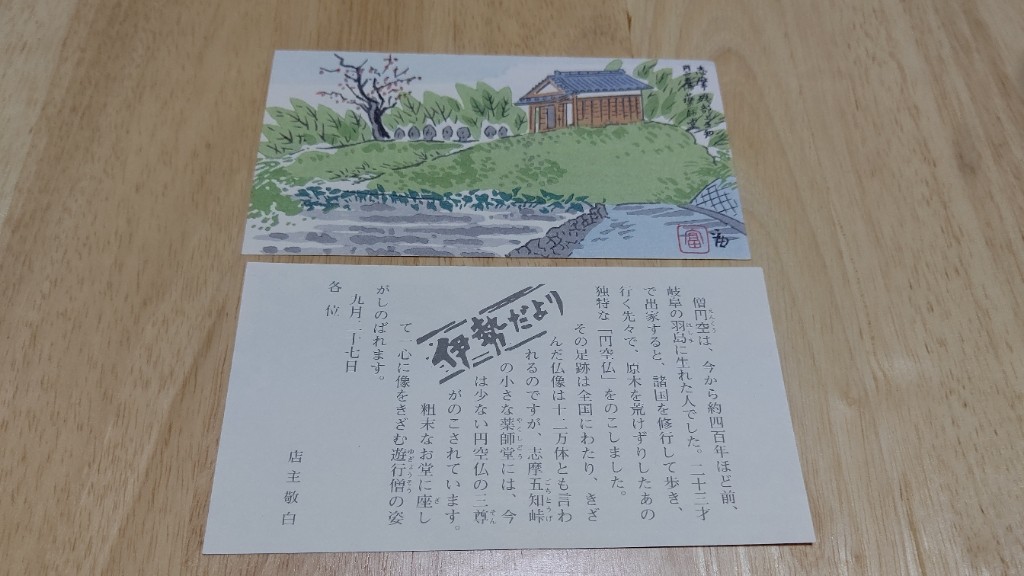 僧円空は、今から約四百年ほど前、
岐阜の羽島に生れた人でした。二十三才
で出家すると、諸国を修行して歩き、
行く先々で、原木を荒けずりしたあの
独特な「円空仏」をのこしました。
その足跡は全国にわたり、きざ
んだ仏像は十二万体とも言わ
れるのですが、志摩五知峠
の小さな薬師堂には、今
は少ない円空仏の三尊
がのこされています。
粗末なお堂に座し
て一心に像をきざむ遊行僧の姿
がしのばれます。
九月二十七日
各位
店主敬白
伊勢だより